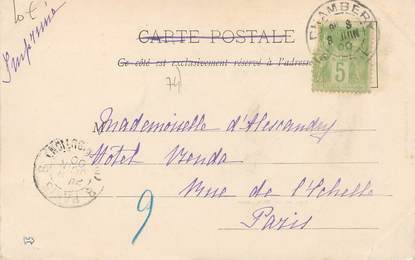 10 €
Imprimé
CHAMBERY
8 JUIN
CARTE POSTALE
Ce côté est exclusivement réservé à l'adresse
5
74
Mademoiselle d'Alexandry
Hotel Vouda
9
Rue de l'Echelle
Paris